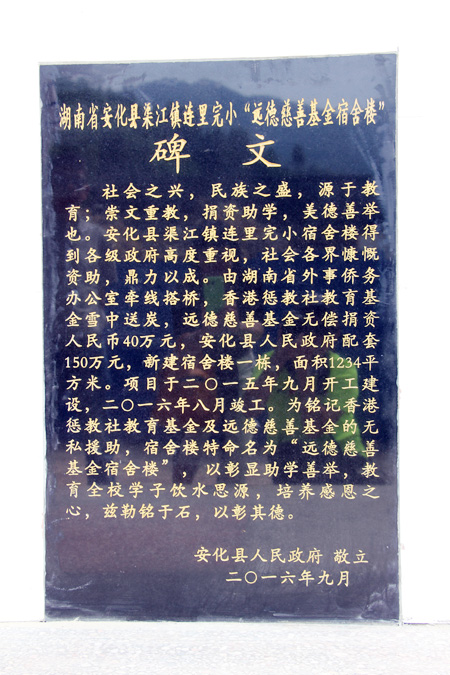 湖南省安化县渠江镇连里完小“远德慈善基金宿舍楼”
碑 文
社会之兴，民族之盛，源于教
育；崇文重教，捐资助学，美德善举
也。安化县渠江镇连里完小宿舍楼得
到各级政府高度重视，社会各界慷慨
资助，鼎力以成。由湖南省外事侨务
办公室牵线搭桥，香港惩教社教育基
金雪中送炭，远德慈善基金无偿捐资
人民币40万元，安化县人民政府配套
150万元，新建宿舍楼一栋，面积1234平
方米。项目于二〇一五年九月开工建
设，二〇一六年八月竣工。为铭记香港
惩教社教育基金及远德慈善基金的无
私援助，宿舍楼特命名为“远德慈善
基金宿舍楼” 以彰显助学善举，教
育全校学子饮水思源，培养感恩之
心，兹勒铭于石，以彰其德。
安化县人民政府 敬立
二〇一六年九月